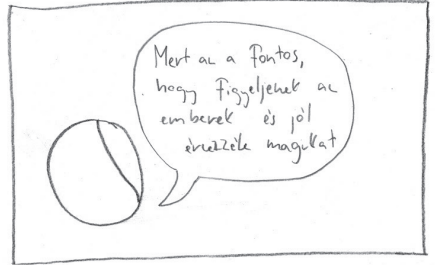 Mert az a Fontos,
hogy Figyeljenek az
emberek és jól
érezzék magukat